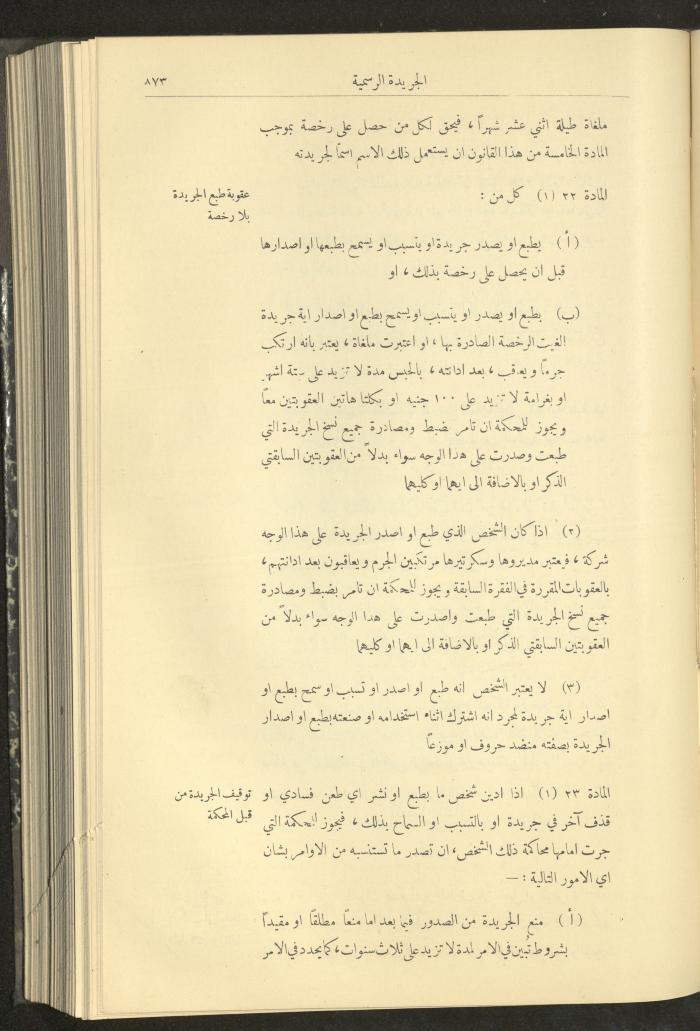 الجريدة الرسمية ٨٧٣
ملغاة طيلة اثني عشر شهراً ، فيحق لكل من حصل على رخصة بموجب
المادة الخامسة من هذا القانون ان يستعمل ذلك الاسم اسماً لجريدته
عقوبة طبع الجريدة
بلا رخصة
المادة ٢٢ (١) كل من :
(أ) يطبع او يصدر جريدة او يتسبب او يسمح بطبعها او اصدارها
قبل ان يحصل على رخصة بذلك ، او
(ب) يطبع او يصدر او يتسبب او يسمح بطبع او اصدار اية جريدة
الغيت الرخصة الصادرة بها ، او اعتبرت ملغاة ، يعتبر بانه ارتكب
جرماً ويعاقب ، بعد ادانته ، بالحبس مدة لا تزيد على ستة اشهر
او بغرامة لا تزيد على ١٠٠ جنيه او بكلتا هاتين العقوبتين معاً
ويجوز للمحكمة ان تامر بضبط ومصادرة جميع نسخ الجريدة التي
طبعت وصدرت على هذا الوجه سواء بدلاً من العقوبتين السابقتي
الذكر او بالاضافة الى ايهما او كليهما
(٢) اذا كان الشخص الذي طبع او اصدر الجريدة على هذا الوجه
شركة ، فيعتبر مديروها وسكرتيرها مرتكبين الجرم ويعاقبون بعد ادانتهم ،
بالعقوبات المقررة في الفقرة السابقة ويجوز للمحكمة ان تامر بضبط ومصادرة
جميع نسخ الجريدة التي طبعت واصدرت على هذا الوجه سواء بدلاً من
العقوبتين السابقتي الذكر او بالاضافة الى ايهما او كليهما
(٣) لا يعتبر الشخص انه طبع او اصدر او تسبب او سمح بطبع او
اصدار اية جريدة لمجرد انه اشترك اثناء استخدامه او صنعته بطبع او اصدار
الجريدة بصفته منضد حروف او موزعاً
توقيف الجريدة من
قبل المحكمة
المادة ٢٣ (١) اذا ادين شخص ما بطبع او نشر اي طعن فسادي او
قذف آخر في جريدة او بالتسبب او السماح بذلك ، فيجوز للمحكمة التي
جرت امامها محاكمة ذلك الشخص، ان تصدر ما تستنسبه من الاوامر بشان
اي الامور التالية : —
(أ) منع الجريدة من الصدور فيما بعد اما منعاً مطلقاً او مقيداً
بشروط تُبين في الامر لمدة لا تزيد على ثلاث سنوات، كما يحدد في الامر